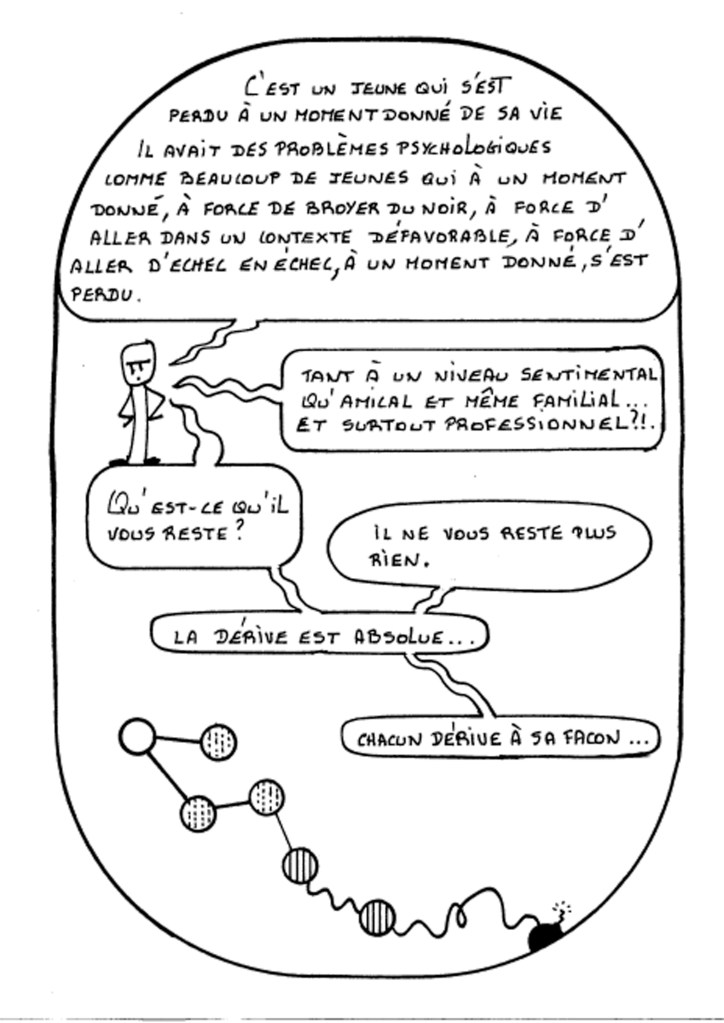 C'EST UN JEUNE QUI S'EST
PERDU À UN MOMENT DONNÉ DE SA VIE
IL AVAIT DES PROBLÈMES PSYCHOLOGIQUES
COMME BEAUCOUP DE JEUNES QUI À UN MOMENT
DONNÉ, À FORCE DE BROYER DU NOIR, À FORCE D'
ALLER DANS UN CONTEXTE DÉFAVORABLE, À FORCE D'
ALLER D'ECHEC EN ÉCHEC, À UN MOMENT DONNÉ, S'EST
PERDU.
TANT À UN NIVEAU SENTIMENTAL
QU'AMICAL ET MÊME FAMILIAL...
ET SURTOUT PROFESSIONNEL?!.
QU'EST-CE QU'IL
VOUS RESTE?
IL NE VOUS RESTE PLUS
RIEN.
LA DÉRIVE EST ABSOLUE...
CHACUN DÉRIVE À SA FACON...